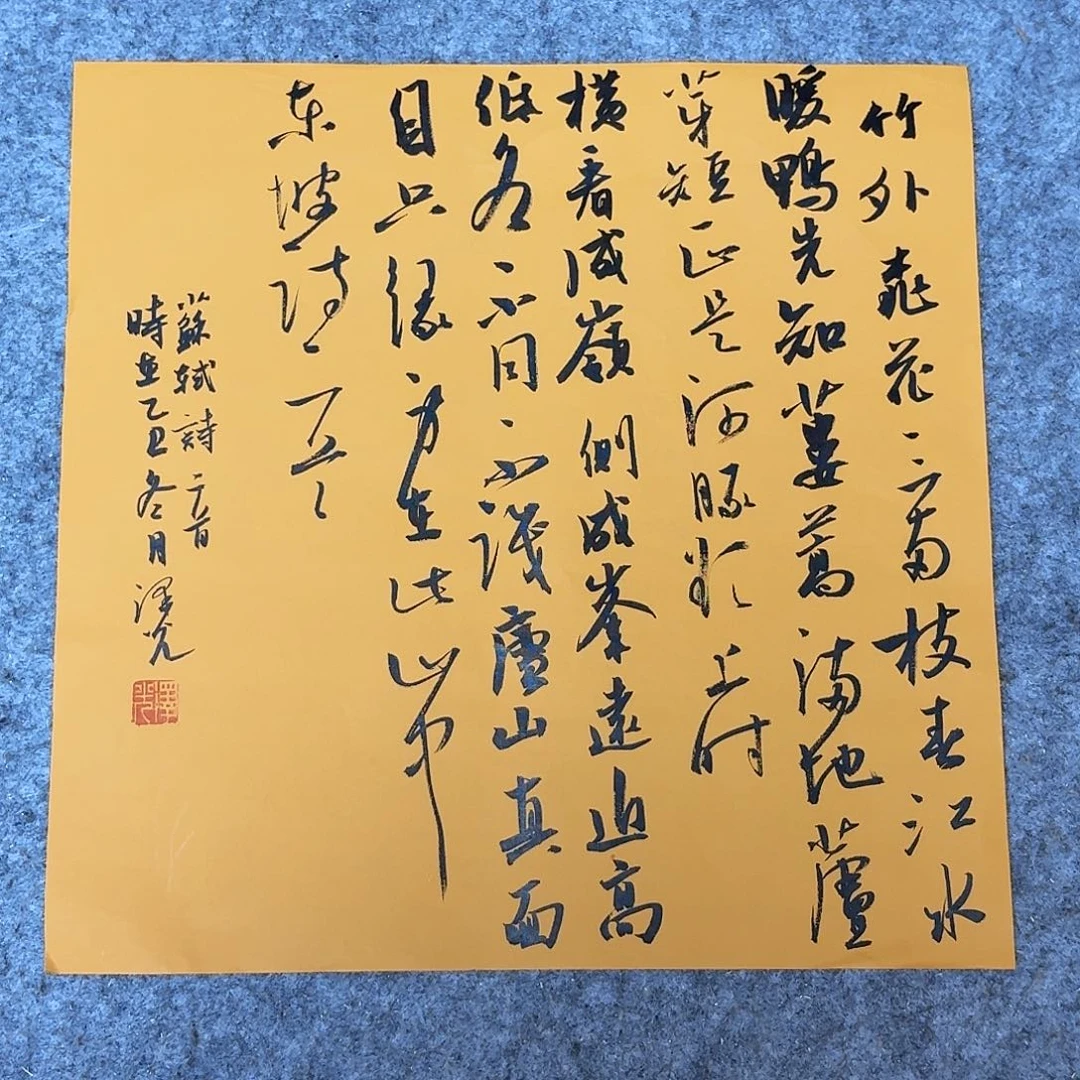 竹外桃花三兩枝春江水
暖鴨先知蔞蒿滿地蘆
芽短正是河豚欲上时
橫看成嶺側成峯遠近高
低各不同不識廬山真面
目只緣身在此山中
东坡诗二首
蘇軾詩二首
時在乙冬月澤光
澤光